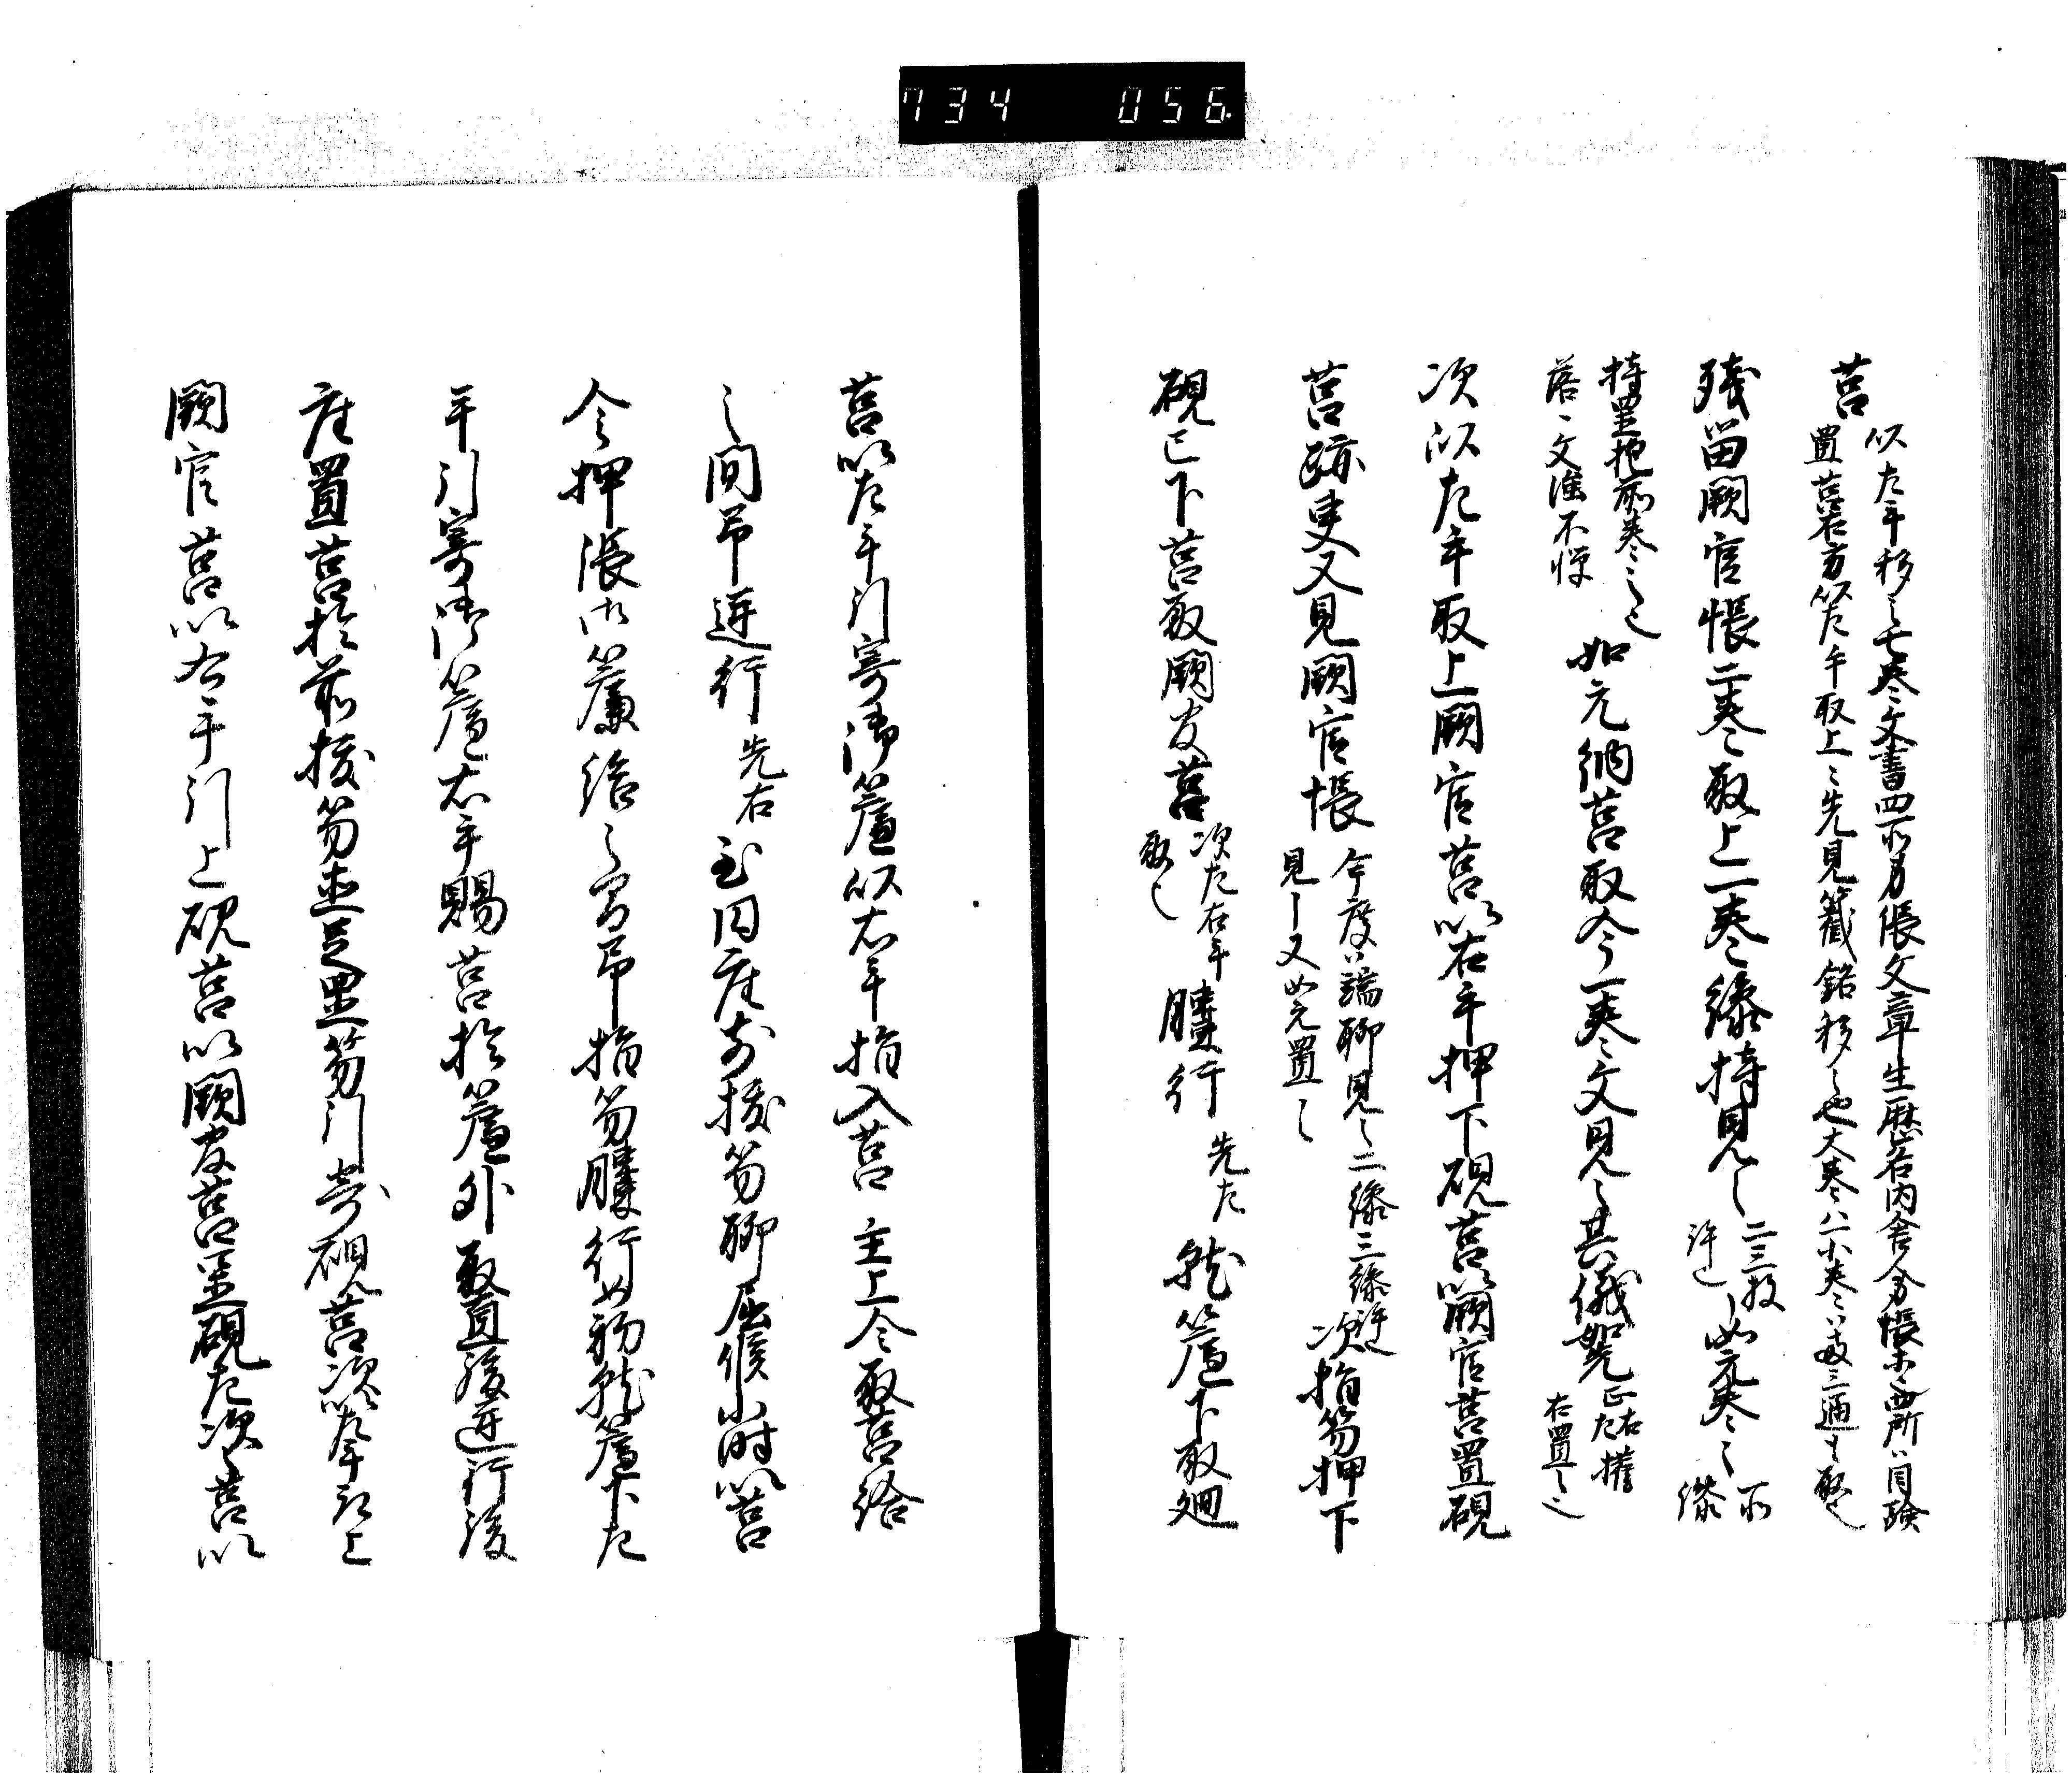 734 056
莒
以左手移之七巻文書四所勞帳文章生歴名内舎人勞帳等也所〻同殿
置莒右方以左手取上〻先見籤銘移之也大巻ハ一小巻ハ或二三通モ取之
残留闕官帳二巻取上一巻縿持見之
二三枚
許也
如元巻之
不
縿
持聖抱前巻之也
落〻文
不
如元納莒取今一巻文見之其儀如先
正左右
右置之也
次以左手取上闕官莒以右手押下硯莒以闕官莒置硯
莒跡更又見闕官帳
今度ハ端聊見之二縿三縿許也
見了又如元置之
次指笏押下
硯已下莒取闕官莒
次左右手
取之
膝行
先左
就簾下取廻
莒以左手引寄御簾以右手指入莒 主上令取莒給
之間帀逆行
先右
至円座前拔笏聊屈候小時以莒
令押張御簾給之間帀指笏膝行如初就簾下左
手引寄御簾右手賜莒於簾外取直後逆行復
座置莒於前拔笏逆置笏引寄硯莒次以左手引上
闕官莒以右手引上硯莒以闕官莒置硯左次〻莒以